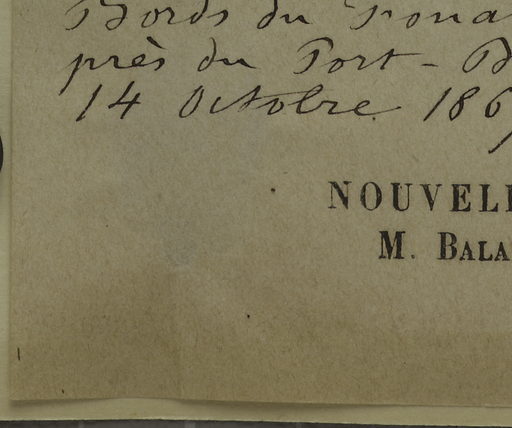 Bords du
près du Port-B
14 Octobre 186
NOUVELL
M. BALA